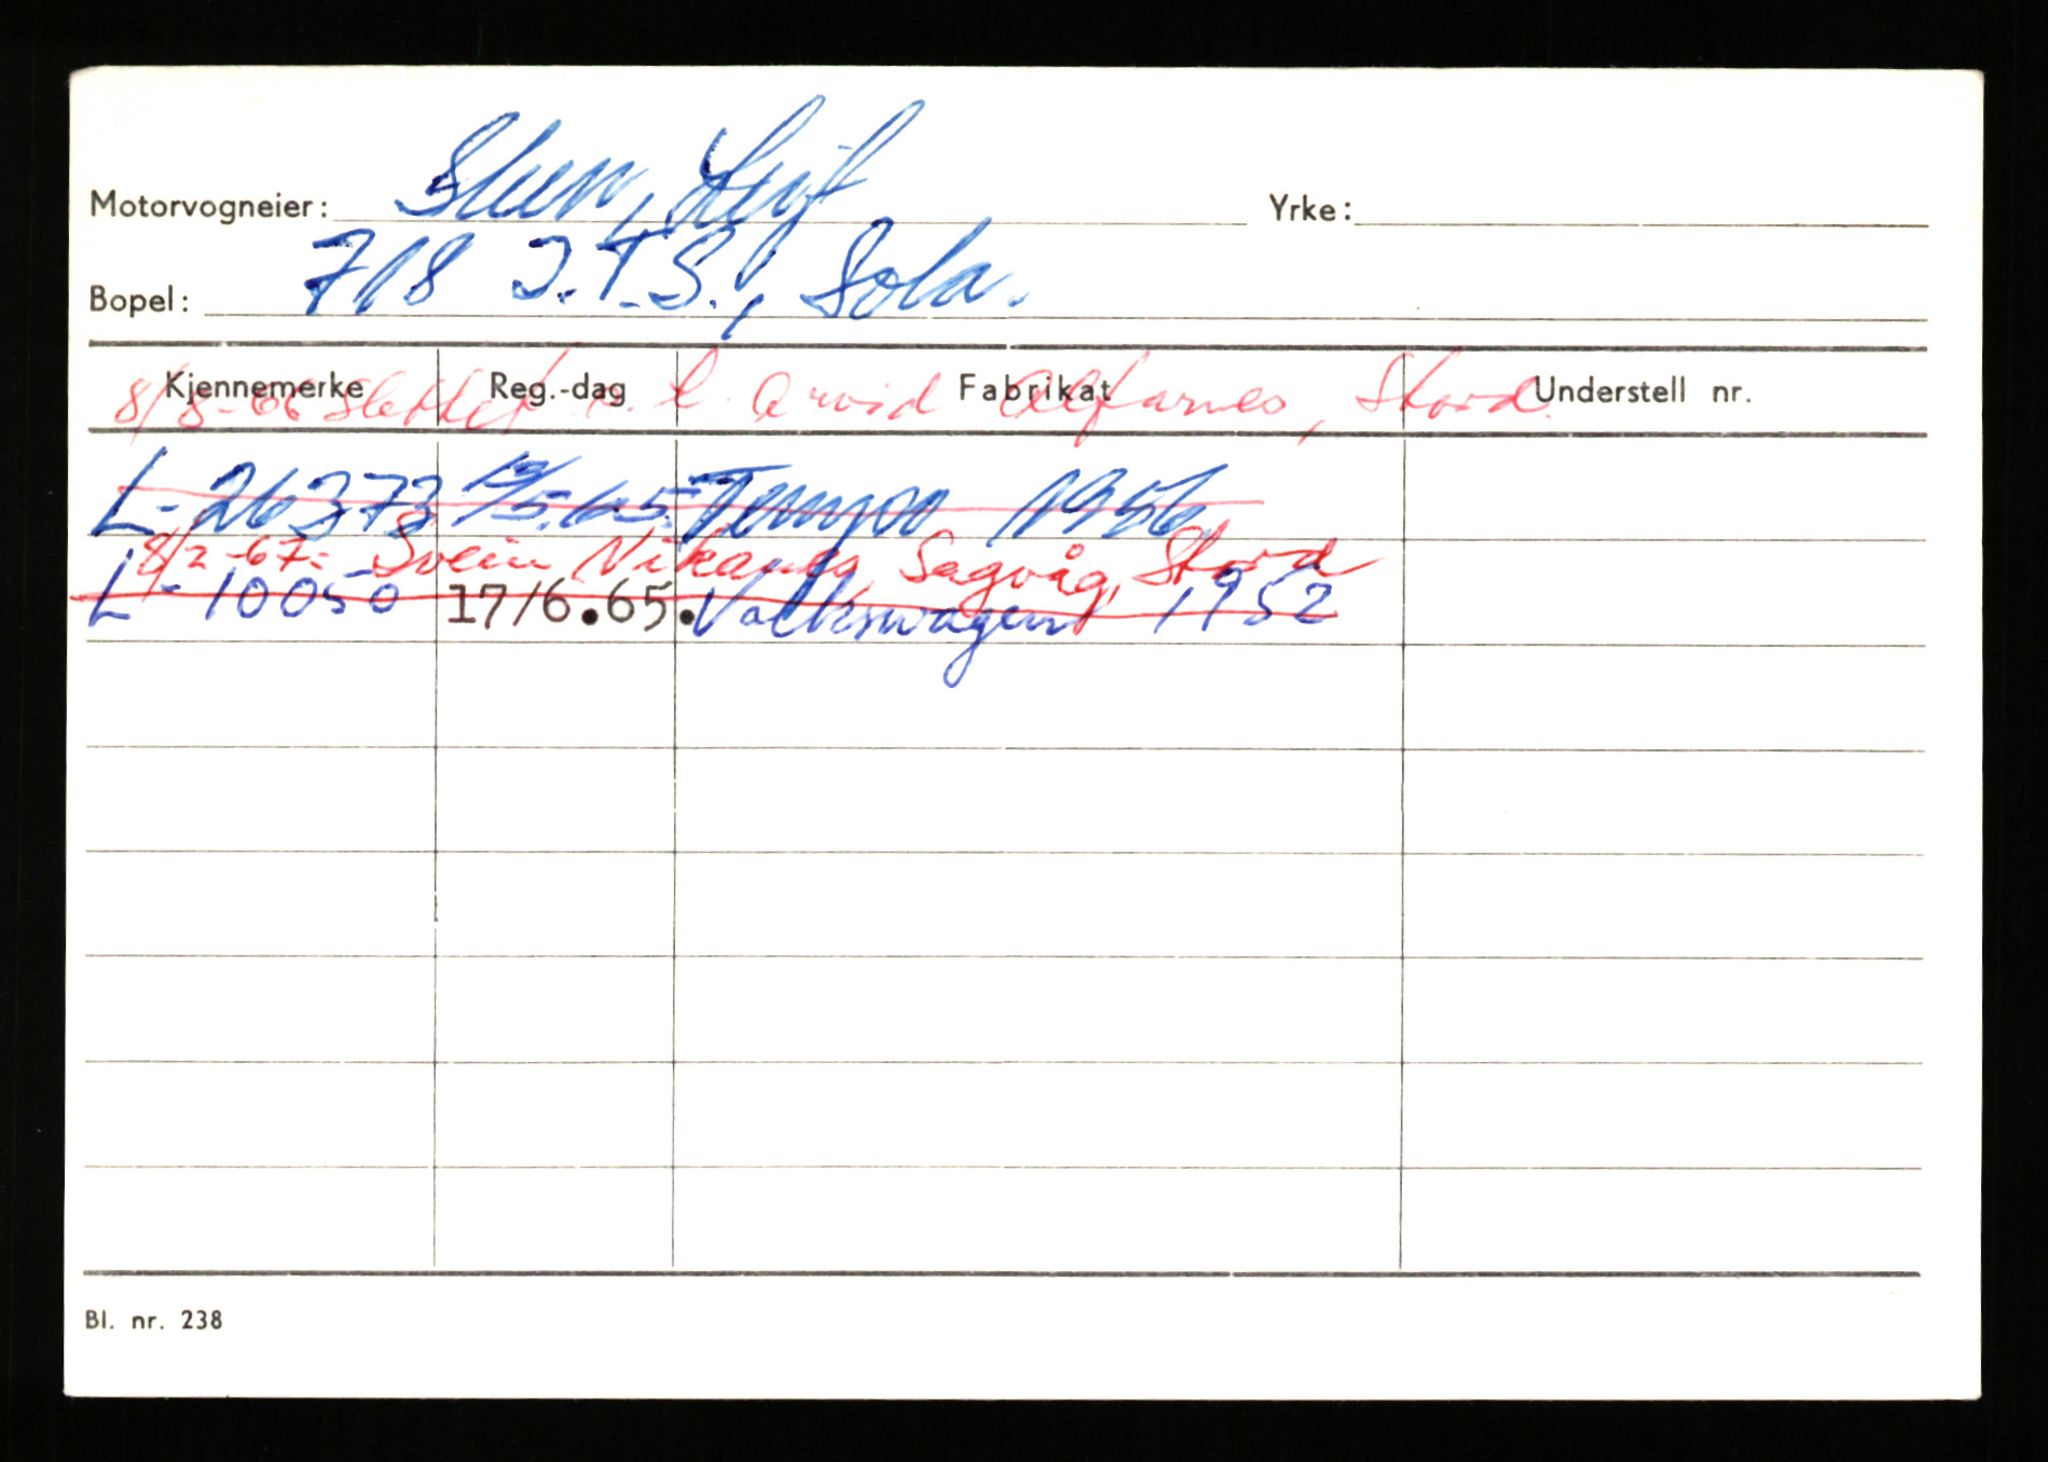 Motorvogneier: Skum, Leif Yrke:
Bopel: 718 J.T.S., Sola.
Kjennemerke Reg.-dag Fabrikat Understell nr.
8/8-66 slettet Arvid Alfarnes, Stord
L-26373 /5.65. Tempo 1956
8/2-67: Svein Sagvåg, Stord
L-10050 17/6.65. Volkswagen 1952
Bl. nr. 238